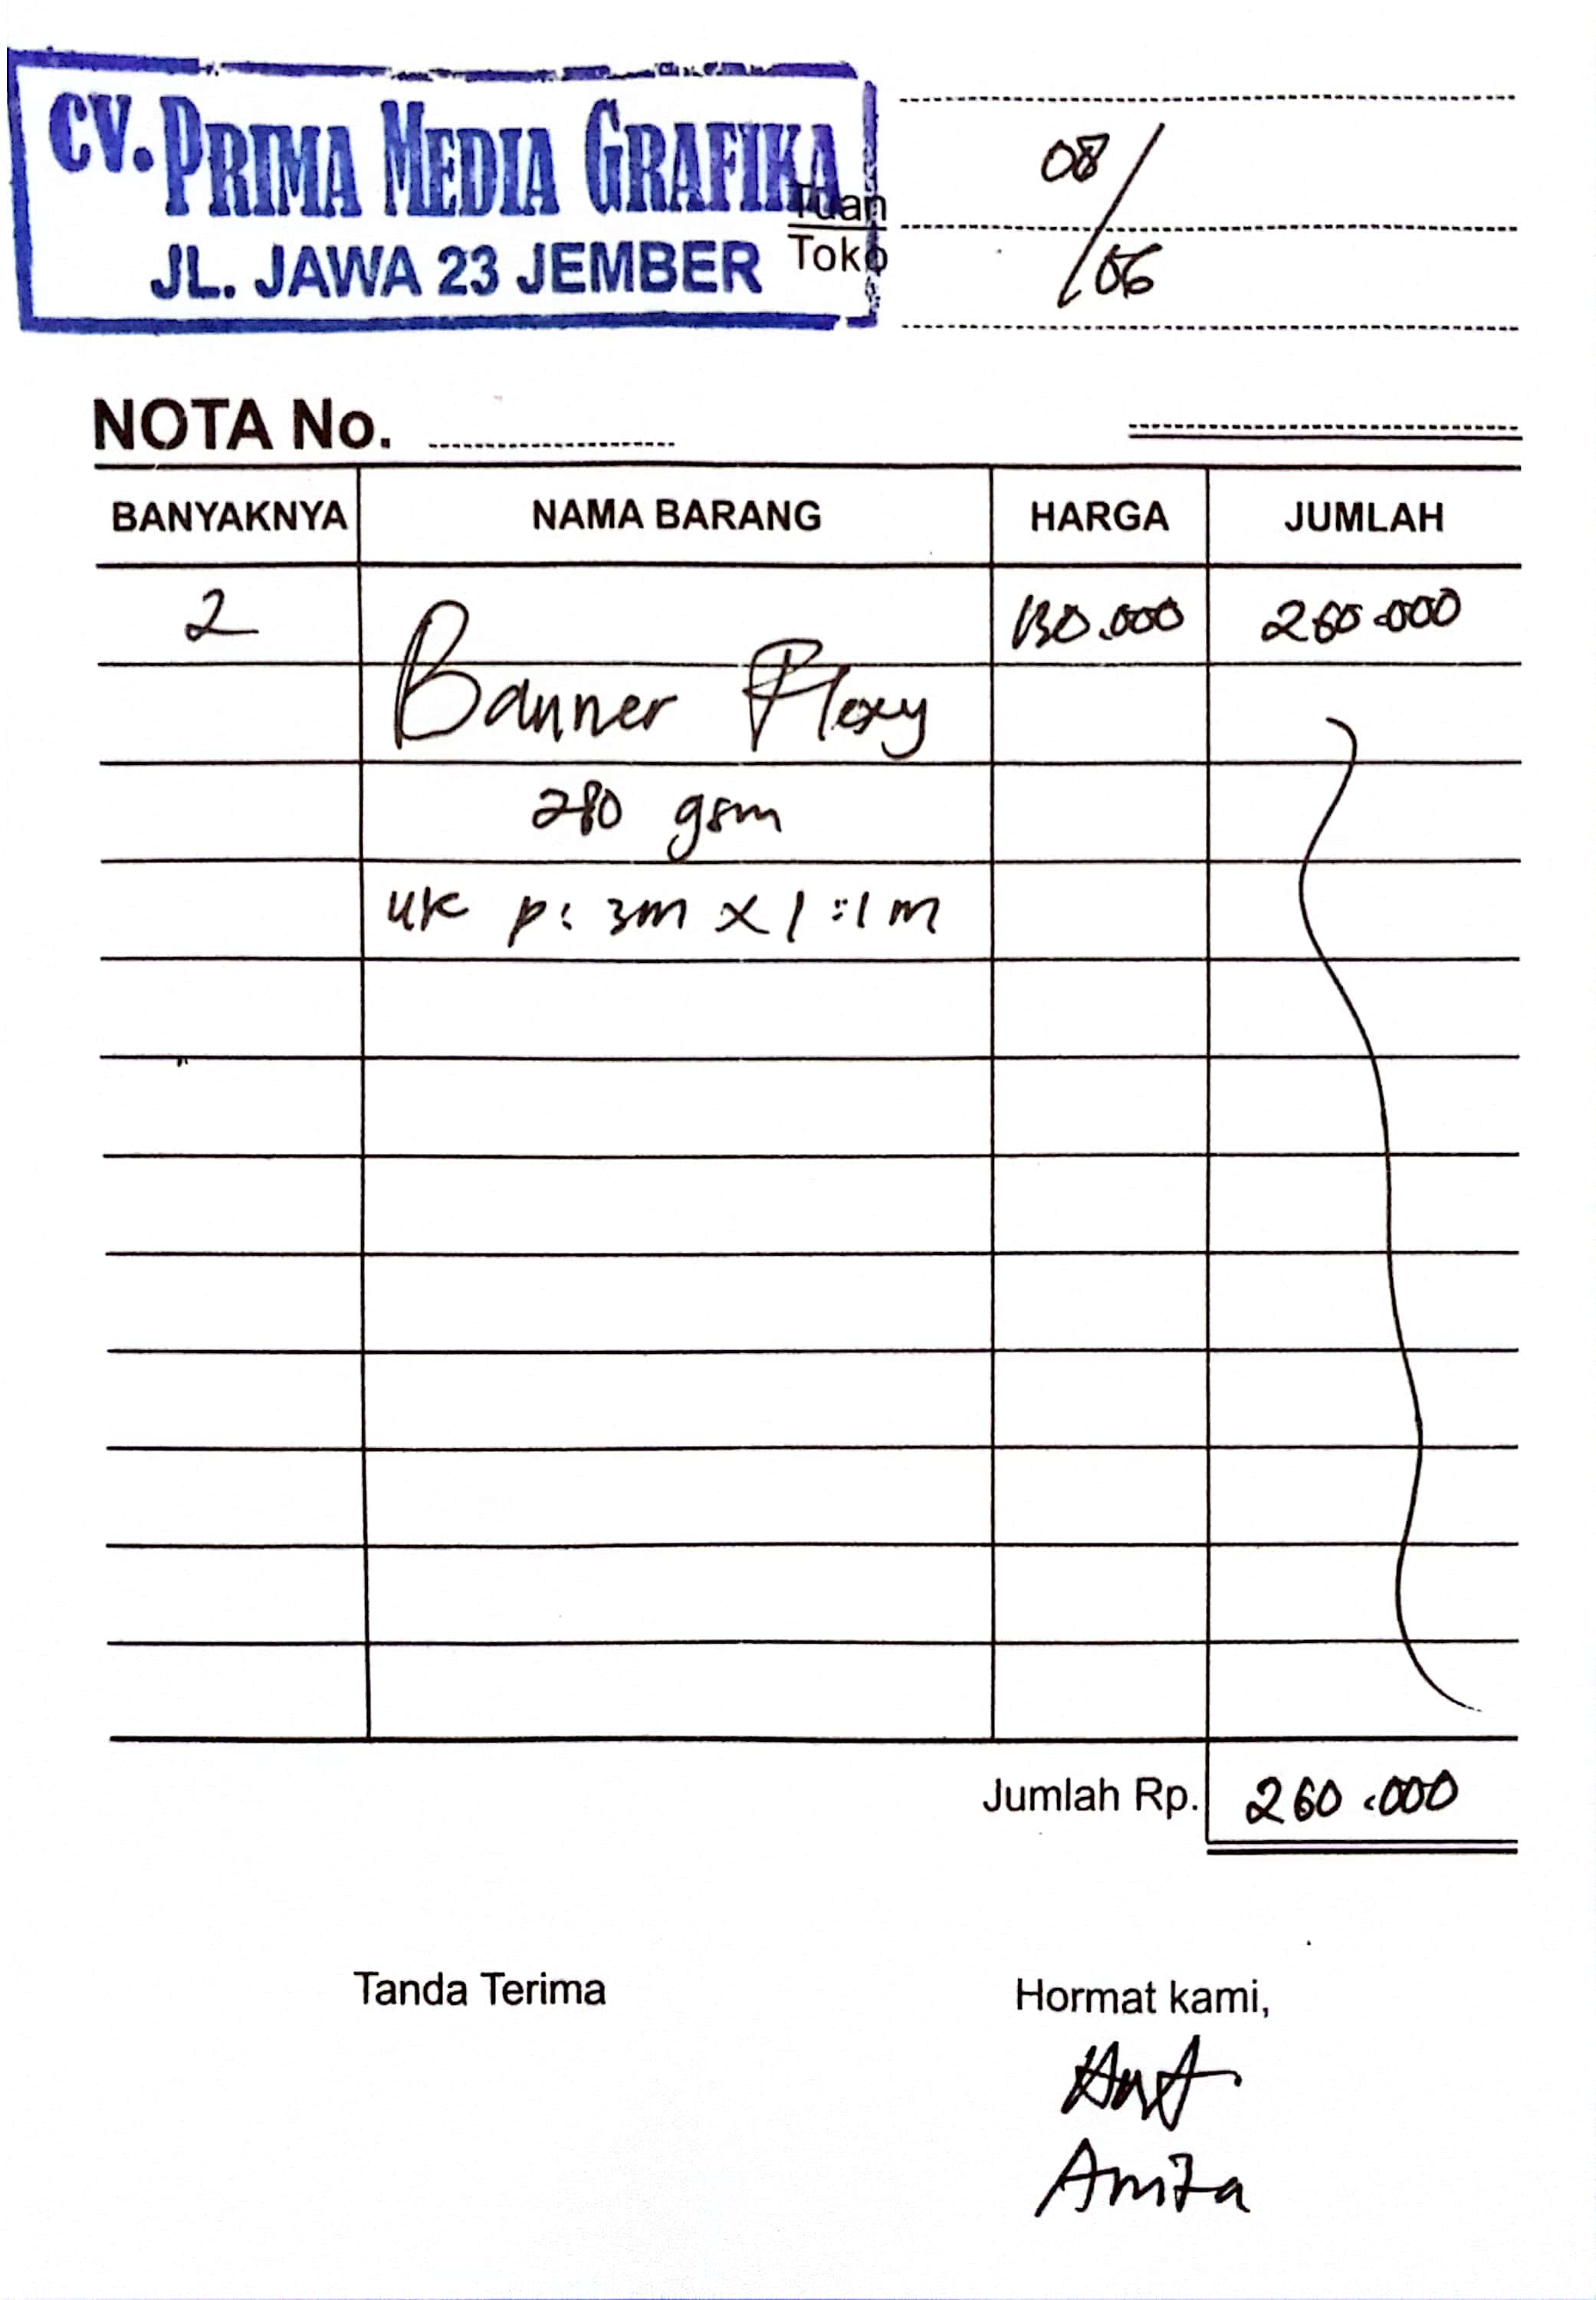 CV. PRIMA MEDIA GRAFIKA
JL. JAWA 23 JEMBER
Tuan
Toko
08/06
NOTA No.
BANYAKNYA NAMA BARANG HARGA JUMLAH
2 Banner Flexy 130.000 260.000
280 gsm
uk p: 3m x l : 1m
Jumlah Rp. 260.000
Tanda Terima Hormat kami,
Anita